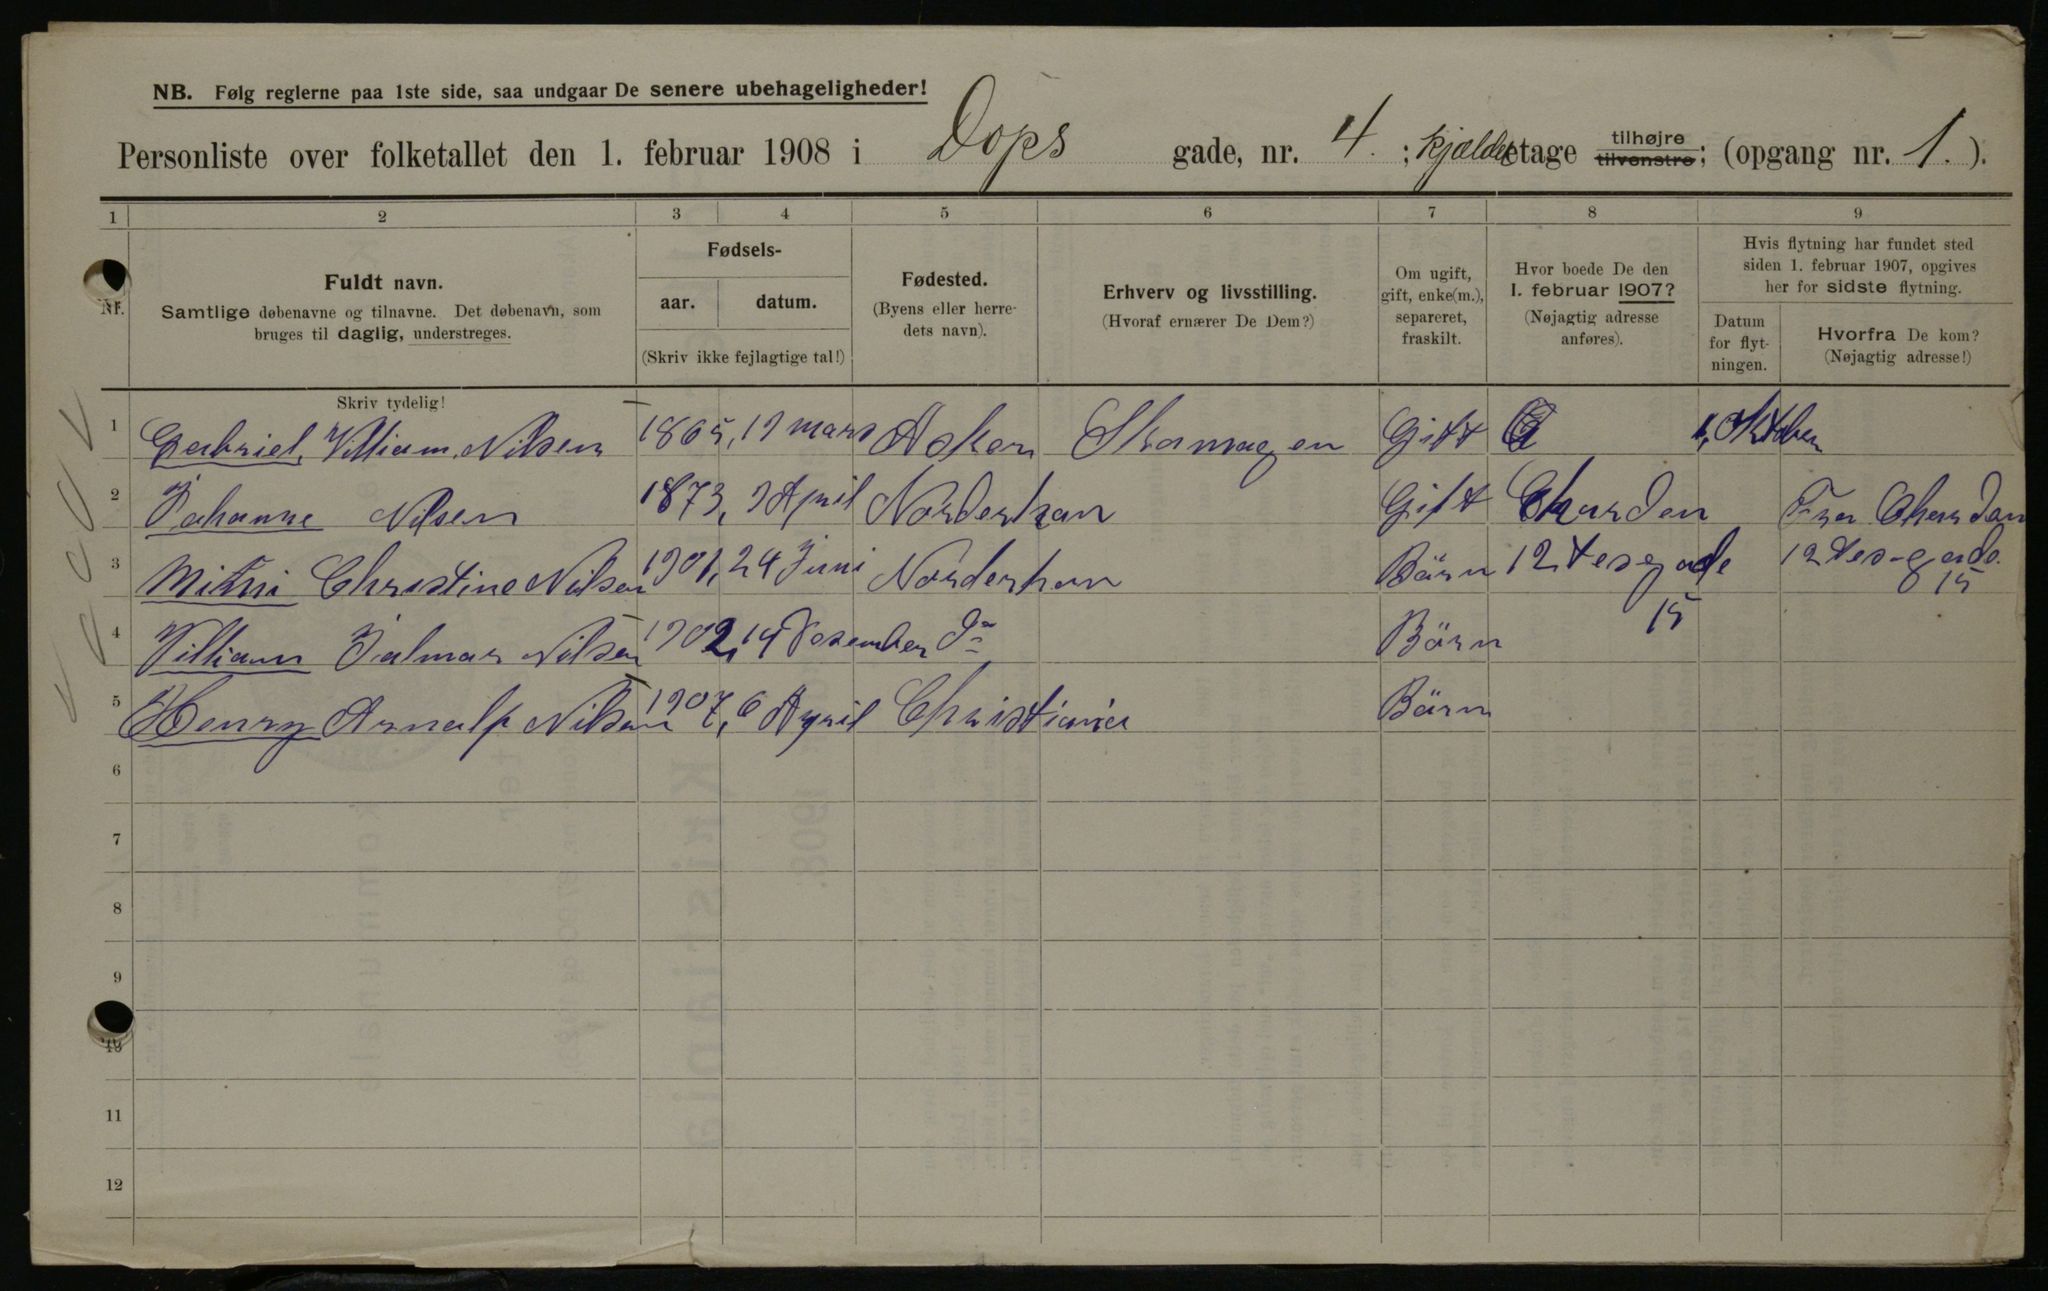 NB. Følg reglerne paa 1ste side, saa undgaar De senere ubehageligheder!
Personliste over folketallet den 1. februar 1908 i Dops gade, nr. 4. ; kjælder etage tilhøjre tilvenstre; (opgang nr. 1. ).
1 2 3 4 5 6 7 8 9
Nr.
Fuldt navn.
Samtlige døbenavne og tilnavne. Det døbenavn, som
bruges til daglig, understreges.
Skriv tydelig!
Fødsels-
aar. datum.
(Skriv ikke fejlagtige tal!)
Fødested.
(Byens eller herre-
dets navn).
Erhverv og livsstilling.
(Hvoraf ernærer De Dem?)
Om ugift,
gift, enke(m.),
separeret,
fraskilt.
Hvor boede De den
1. februar 1907?
(Nøjagtig adresse
anføres).
Hvis flytning har fundet sted
siden 1. februar 1907, opgives
her for sidste flytning.
Datum
for flyt-
ningen.
Hvorfra De kom?
(Nøjagtig adresse!)
1 Gabriel, Villiam, Nilsen 1865, 19 mars Asker Skomagen Gift 1, Oktober
2 Johanne Nilsen 1873, 9 April Norderhan Gift Charden Fra Charden
3 Christine Nilsen 1901, 24 Juni Norderhan Börn 12tesgade 12tes-gade.
15 15
4 Villiam Jalmar Nilsen 1902, 14 Desember Do Börn
5 Henry Arnalf Nilsen 1907, 6 April Christiania Börn
6
7
8
9
10
11
12